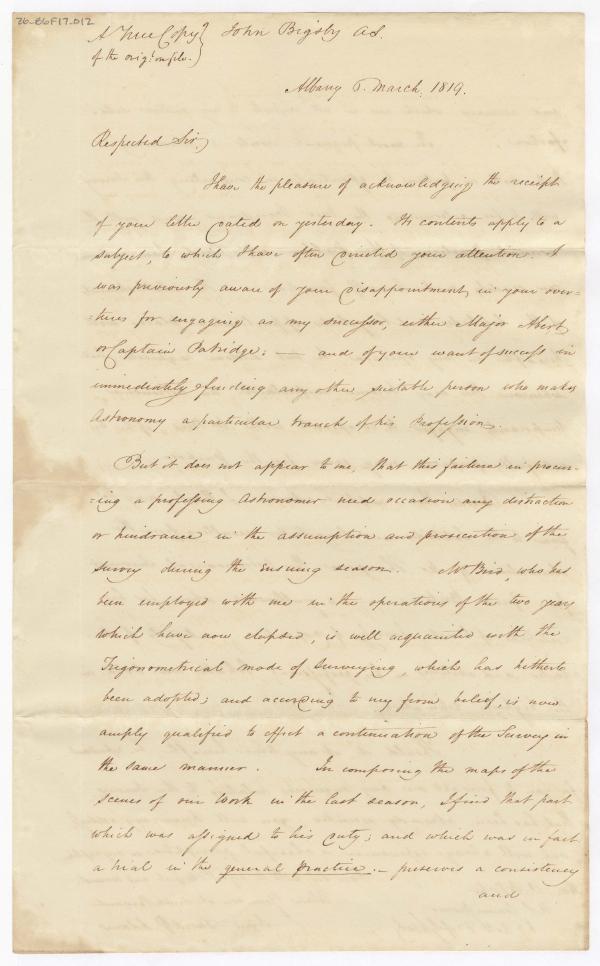 26-E6F17.012
A True Copy } John Bigsby A.S.
of the orig.l on file. }
Albany 6. March, 1819.
Respected Sir,
I have the pleasure of acknowledging the receipt
of your letter dated on yesterday. Its contents apply to a
subject, to which I have often directed your attention: I
was previously aware of your disappointment, in your over-
-tures for engaging as my successor, either Major Abert,
or Captain Patridge; — and of your want of success in
immediately finding any other suitable person who makes
Astronomy a particular branch of his Profession.
But it does not appear to me, that this failure in procur-
-ing a professing Astronomer need occasion any distraction
or hindrance in the assumption and prosecution of the
Survey during the ensuing season. Mr Bird, who has
been employed with me in the operations of the two years
which have now elapsed, is well acquainted with the
Trigonometrical mode of Surveying, which has hitherto
been adopted; and according to my firm belief, is now
amply qualified to effect a continuation of the Survey in
the same manner. In composing the maps of the
scenes of our work in the last season, I find that part
which was assigned to his duty; and which was in fact
a trial in the general Practice. — preserves a consistency
and